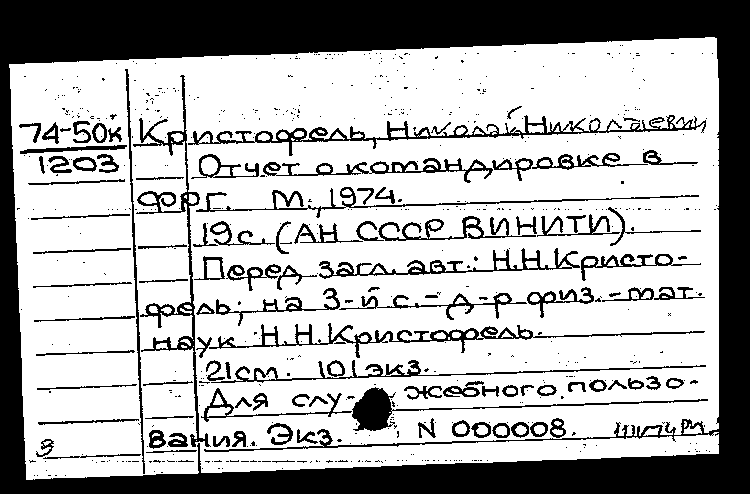 74-50к Кристофель, Николай Николаевич
1203 Отчет о командировке в
ФРГ. М., 1974.
19с. (АН СССР ВИНИТИ).
Перед загл. авт.: Н.Н.Кристо-
фель; на 3-й с. - д-р физ.-мат.
наук Н.Н.Кристофель.
21см. 101экз.
Для слу- жебного пользо-
вания. Экз. N 000008.